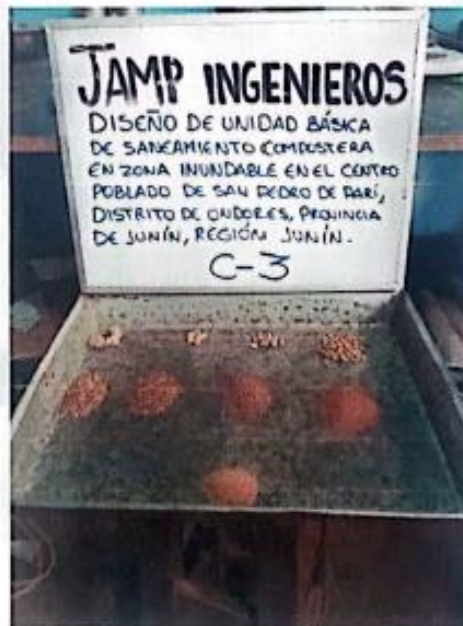 JAMP INGENIEROS
DISEÑO DE UNIDAD BÁSICA
DE SANEAMIENTO COMPOSTERA
EN ZONA INUNDABLE EN EL CENTRO
POBLADO DE SAN PEDRO DE PARÍ,
DISTRITO DE ONDORES, PROVINCIA
DE JUNÍN, REGIÓN JUNÍN.
C-3